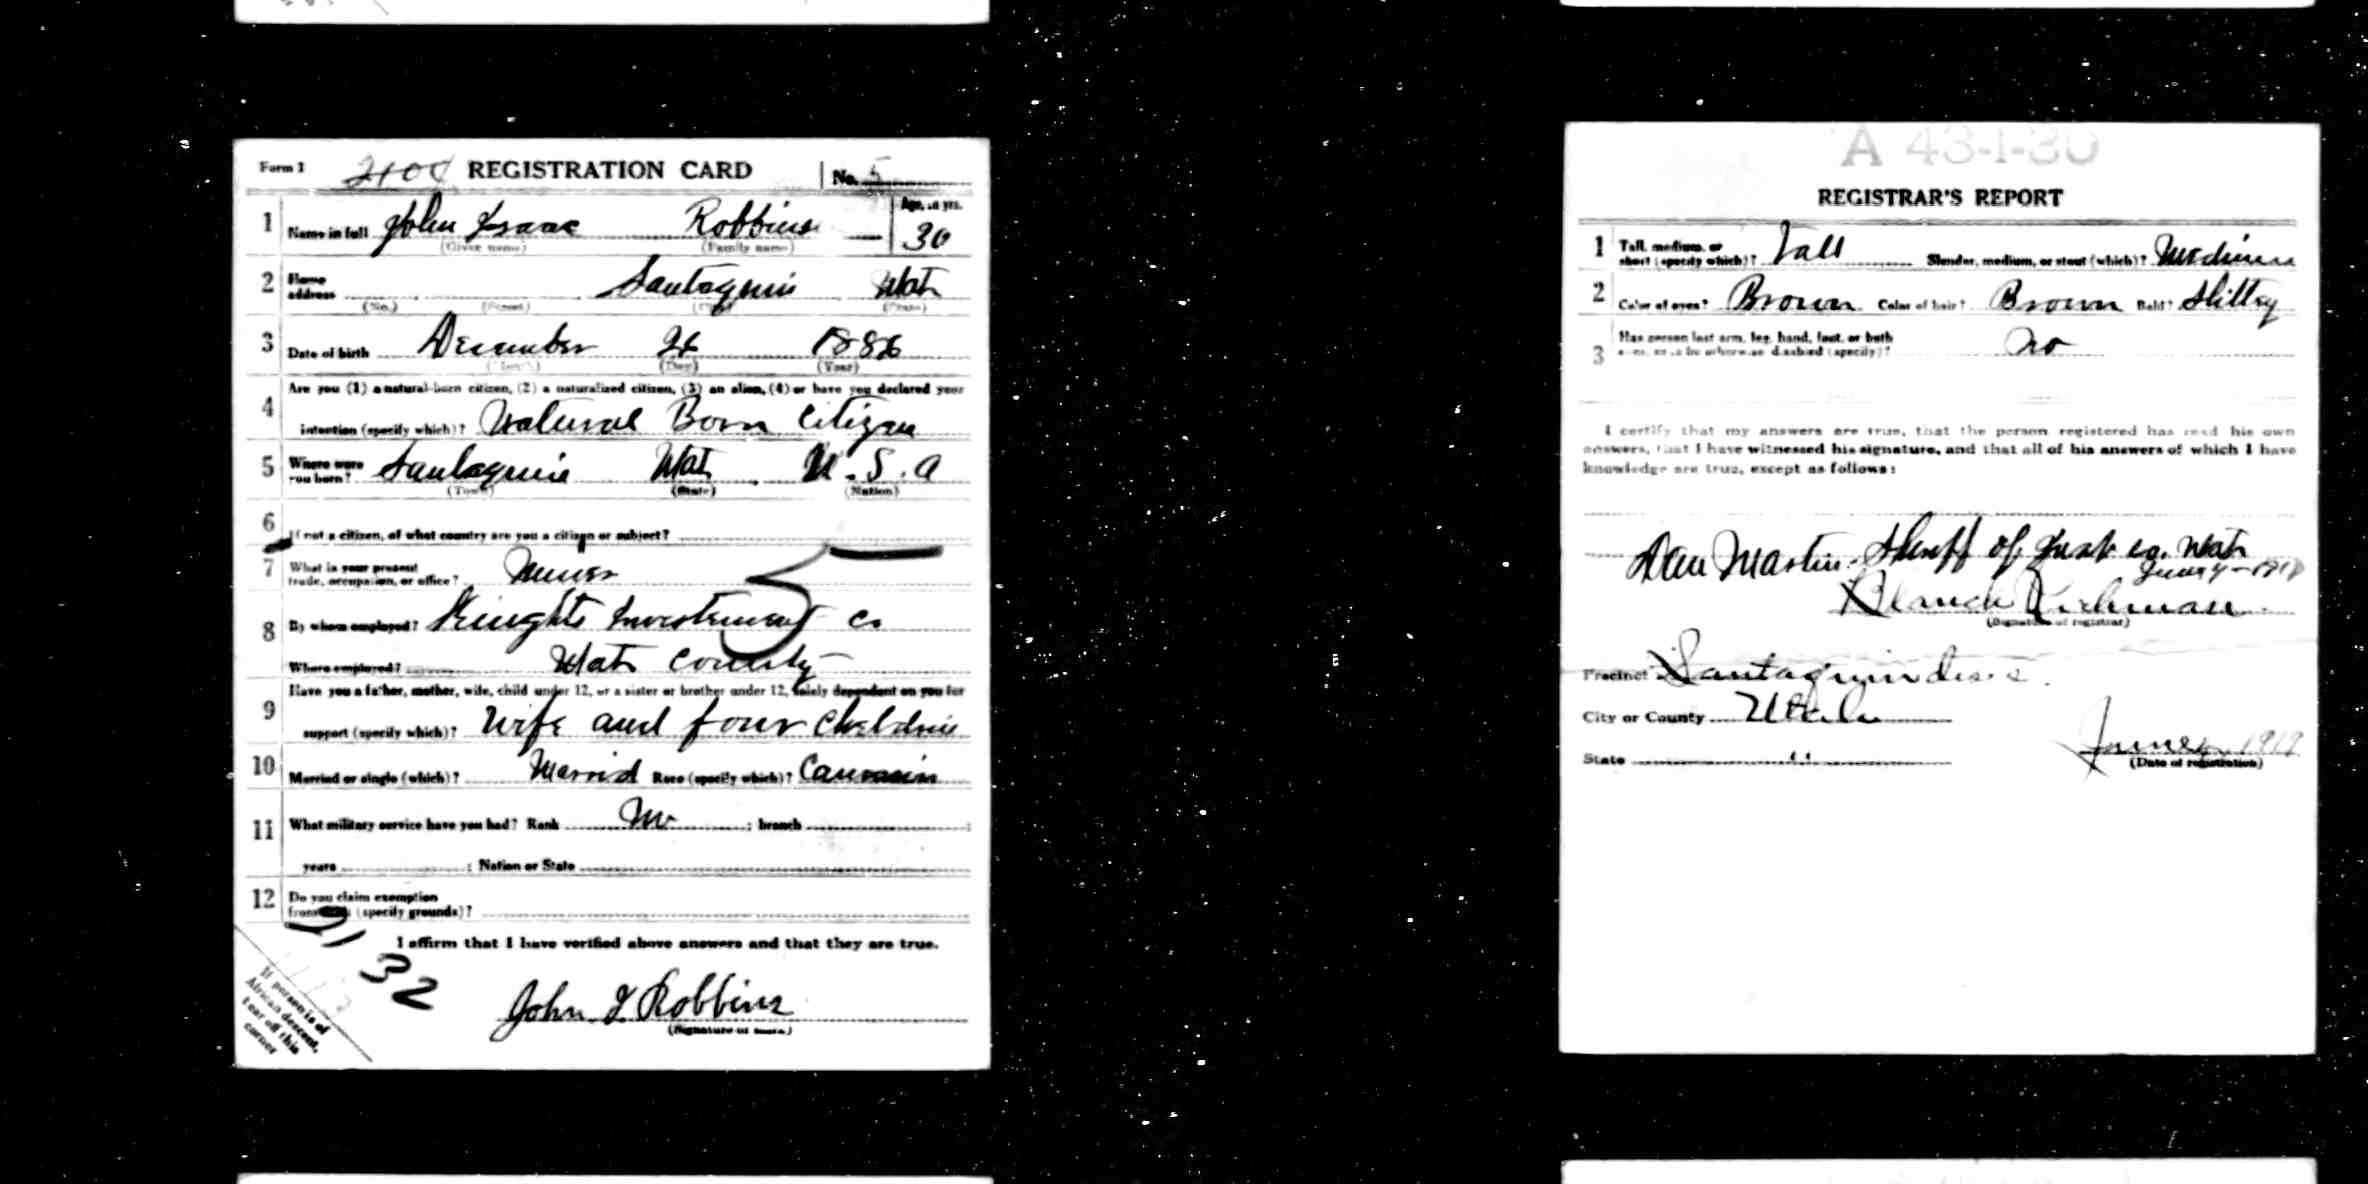 Form 1 REGISTRATION CARD No. 5
1 Name in full John Isaac Robbins Age, in yrs. 30
(Given name) (Family name)
2 Home address Santaquin Utah
(No.) (Street) (City) (State)
3 Date of birth December 26 1886
(Month) (Day) (Year)
4 Are you (1) a natural-born citizen, (2) a naturalized citizen, (3) an alien, (4) or have you declared your
intention (specify which)? Natural Born Citizen
5 Where were you born? Santaquin Utah U.S.A
(Town) (State) (Nation)
6 If not a citizen, of what country are you a citizen or subject?
7 What is your present trade, occupation, or office? Miner
8 By whom employed? Knights Investment Co
Where employed? Utah County
9 Have you a father, mother, wife, child under 12, or a sister or brother under 12, solely dependent on you for
support (specify which)? Wife and four Children
10 Married or single (which)? Married Race (specify which)? Caucasian
11 What military service have you had? Rank No ; branch
years ; Nation or State
12 Do you claim exemption
from (specify grounds)?
I affirm that I have verified above answers and that they are true.
32
John I Robbins
(Signature or mark)
If person is of
African descent,
tear off this
corner
A 43-1-30
REGISTRAR'S REPORT
1 Tall, medium, or short (specify which)? Tall Slender, medium, or stout (which)? Medium
2 Color of eyes? Brown Color of hair? Brown Bald?
3 Has person lost arm, leg, hand, foot, or both
eyes, or is he otherwise disabled (specify)? No
I certify that my answers are true, that the person registered has read his own
answers, that I have witnessed his signature, and that all of his answers of which I have
knowledge are true, except as follows:
Dan Martin Sheriff of Juab Co. Utah
(Signature of registrar)
Precinct Santaquin
City or County Utah
State "
June 1917
(Date of registration)